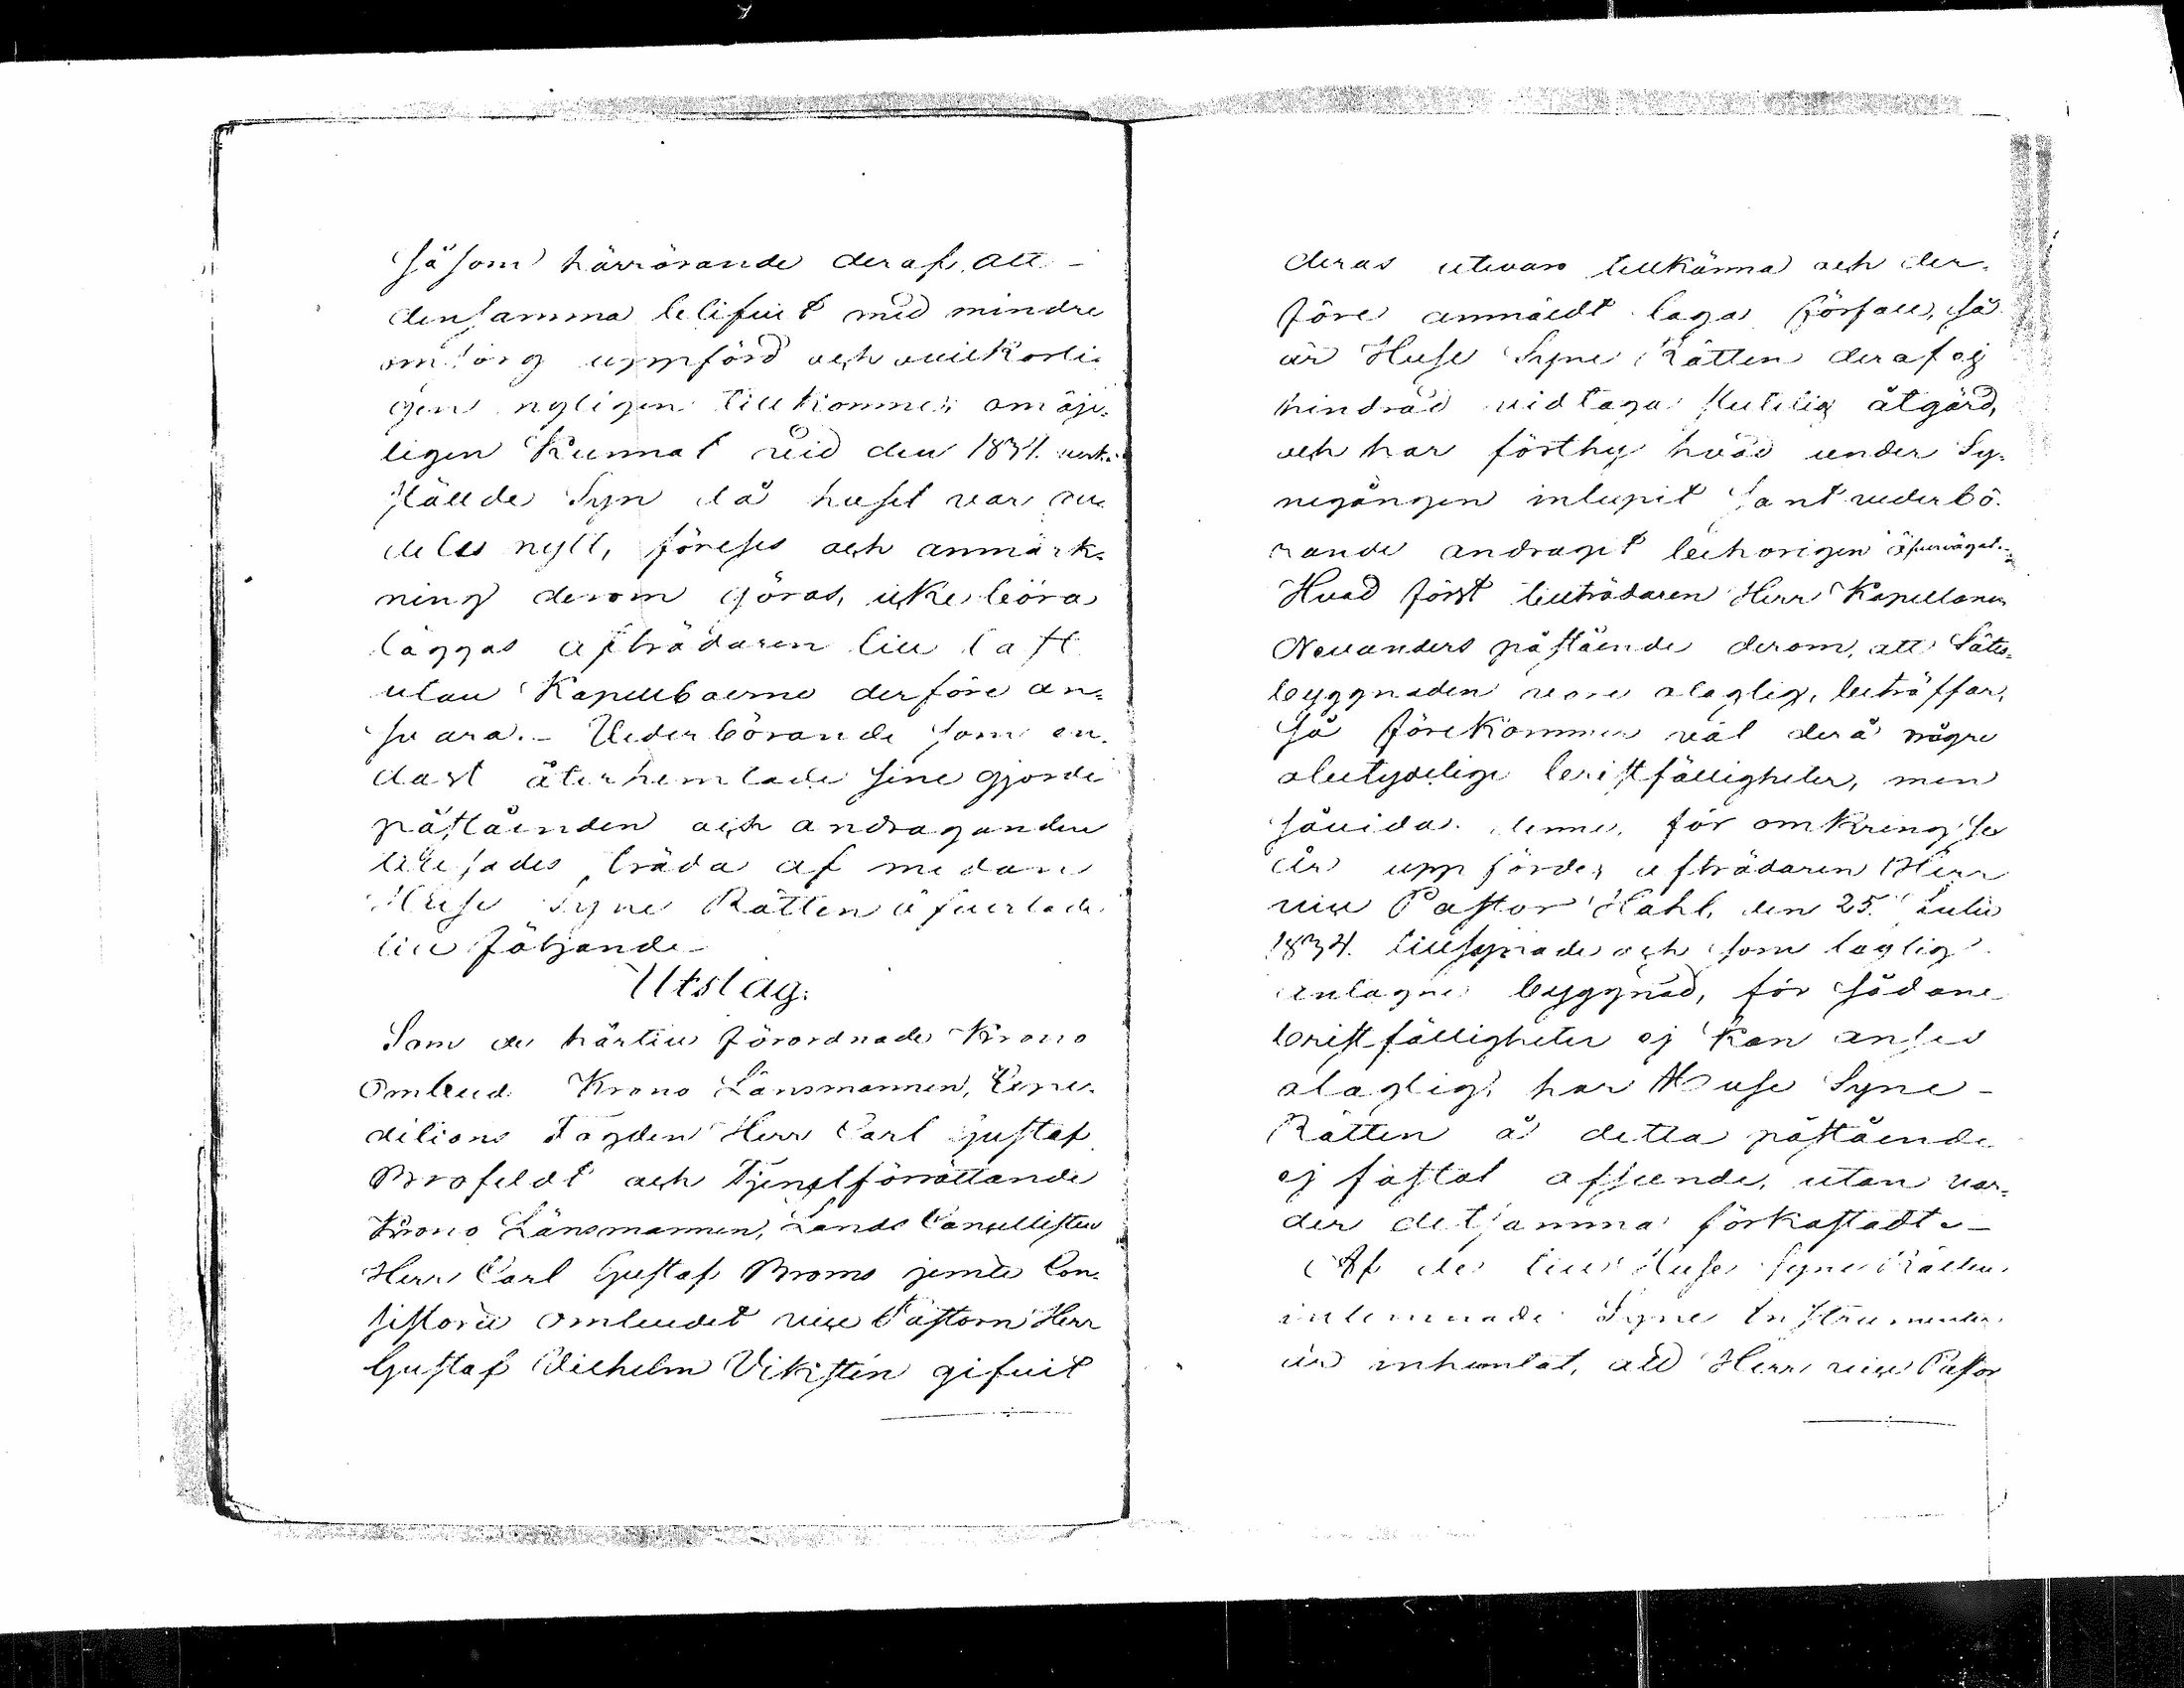 såsom härrörande deraf, att
densamma blifvit med mindre
omsorg uppförd och ovilkorli-
gen nyligen tillkommen omöj-
ligen kunnat vid den 1834 verk-
ställde Syn då huset var
deles nytt, föreses och anmärk-
ning derom göras, icke böra
läggas afträdaren till last
utan Kapellboerne derföre an-
svara. Vederbörande som en-
dast återhemtade sine gjorde
påståenden och andraganden
tillsades träda af medan
Huse Syne Rätten öfverlade
till följande
Utslag:
Som de härtill förordnade Krono
Ombud Krono Länsmannen, Expe-
ditions Fogden Herr Carl Gustaf
Brofeldt och Tjenstförrättande
Krono Länsmannen, Lands Cancellisten
Herr Carl Gustaf Broms jemte Con-
sistorii ombudet vice Pastorn Herr
Gustaf Vilhelm Vikstén gifvit
deras utevaro tillkänna och der-
före anmäldt laga förfall, så
är Huse Syne Rätten deraf ej
hindrad vidtaga slutelig åtgärd,
och har förthy hvad under Sy-
negången inlupit samt vederbö-
rande andragit behörigen öfvervägat.
Hvad först tillträdaren Herr Kapellanen
Nevanders påstående derom, att Sätes-
byggnaden vore olaglig, beträffar,
så förekommer väl derå någre
obetydelige bristfälligheter, men
såvida denne, för omkring sex
år uppförde, afträdaren Herr
vice Pastor Hahl, den 25. Julii
1834. tillsynade och som laglig
antagne byggnad, för sådane
bristfälligheter ej kan anses
olaglig, har Huse Syne
Rätten å detta påstående
ej fästat afseende, utan var-
der detsamma förkastadt.
Af de till Huse Syne Rätten
inlemnade Syne Instrumenter
är inhemtat, att Herr vice Pastor